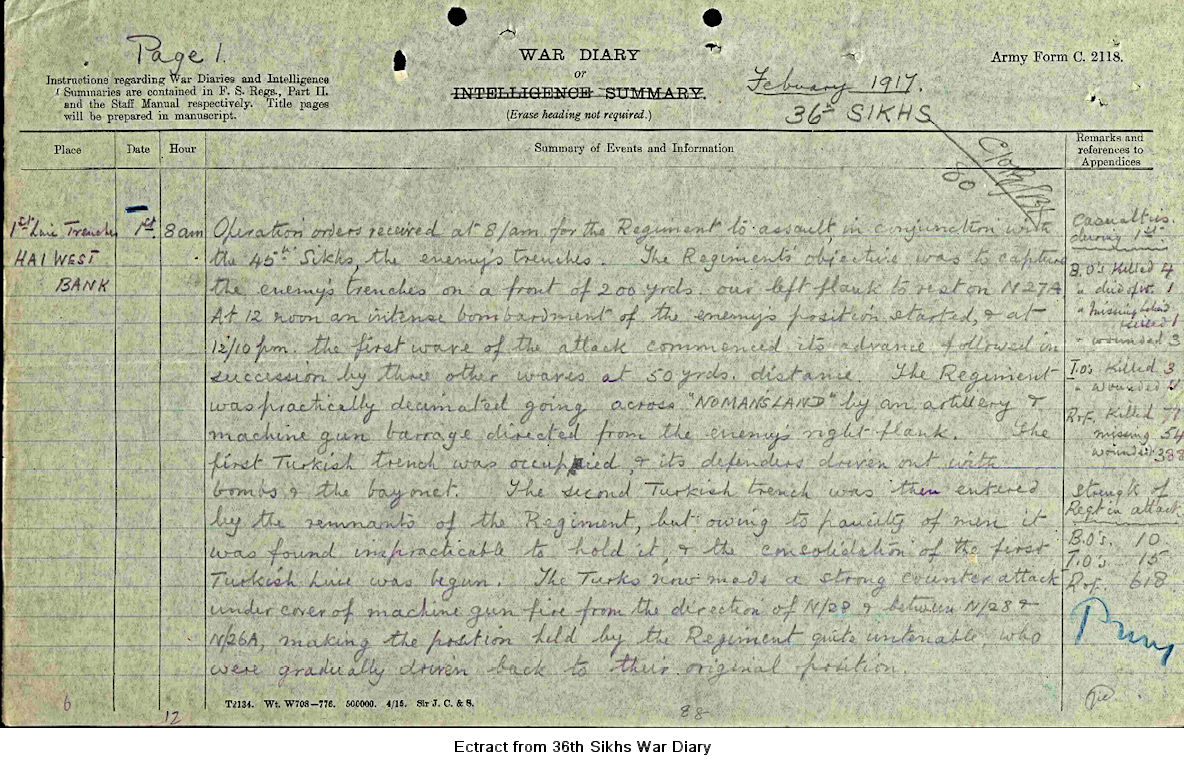 Page 1.
WAR DIARY
or
INTELLIGENCE SUMMARY.
(Erase heading not required.)
Army Form C. 2118.
Instructions regarding War Diaries and Intelligence
Summaries are contained in F. S. Regs., Part II.
and the Staff Manual respectively. Title pages
will be prepared in manuscript.
February 1917.
36th SIKHS
Place
Date
Hour
Summary of Events and Information
Remarks and
references to
Appendices
1st Line Trenches
HAI WEST
BANK
1st.
8 am
Operation orders received at 8/am for the Regiment to assault, in conjunction with
the 45th Sikhs, the enemy's trenches. The Regiments objective was to capture
the enemy's trenches on a front of 200 yrds our left flank to rest on N27A
At 12 noon an intense bombardment of the enemy's position started, & at
12/10 pm. the first wave of the attack commenced its advance followed in
succession by three other waves at 50 yrds. distance. The Regiment
was practically decimated going across "NOMANSLAND" by an artillery &
machine gun barrage directed from the enemy's right flank. The
first Turkish trench was occupied, & its defenders driven out with
bombs & the bayonet. The second Turkish trench was then entered
by the remnants of the Regiment, but owing to paucity of men it
was found impracticable to hold it, & the consolidation of the first
Turkish Line was begun. The Turks now made a strong counter attack
under cover of machine gun fire from the direction of N/28 & between N/28 &
N/26A, making the position held by the Regiment quite untenable, who
were gradually driven back to their original position.
Casualties
during 1st
B.O's Killed 4
" died of w. 1
" missing
killed 1
" wounded 3
I.O's Killed 3
" wounded
R&F. Killed
missing 54
wounded 388
Strength of
Regt in attack
B.O's. 10
I.O's 15
R&F. 618
T2134. Wt. W708—776. 500000. 4/15. Sir J. C. & S.
6
12
88
Ectract from 36th Sikhs War Diary